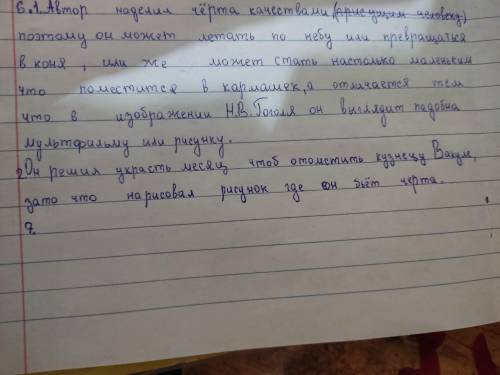 6.1. Автор наделил чёрта качествами (присущим человеку)
поэтому он может летать по небу или превращаться
в коня, или же может стать настолько маленьким
что поместится в кармашек, а отличается тем
что в изображении Н.В. Гоголя он выглядит падобна
мультфильму или рисунку.
2 Он решил украсть месяц чтоб отомстить кузнецу Вакуле,
зато что нарисовал рисунок где он бьёт черта.
7.